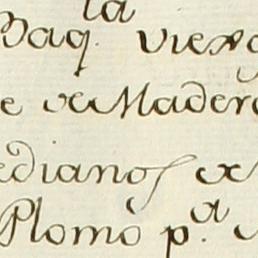 la
Baq. viexo
e de Madero
edianos de
Plomo p.a